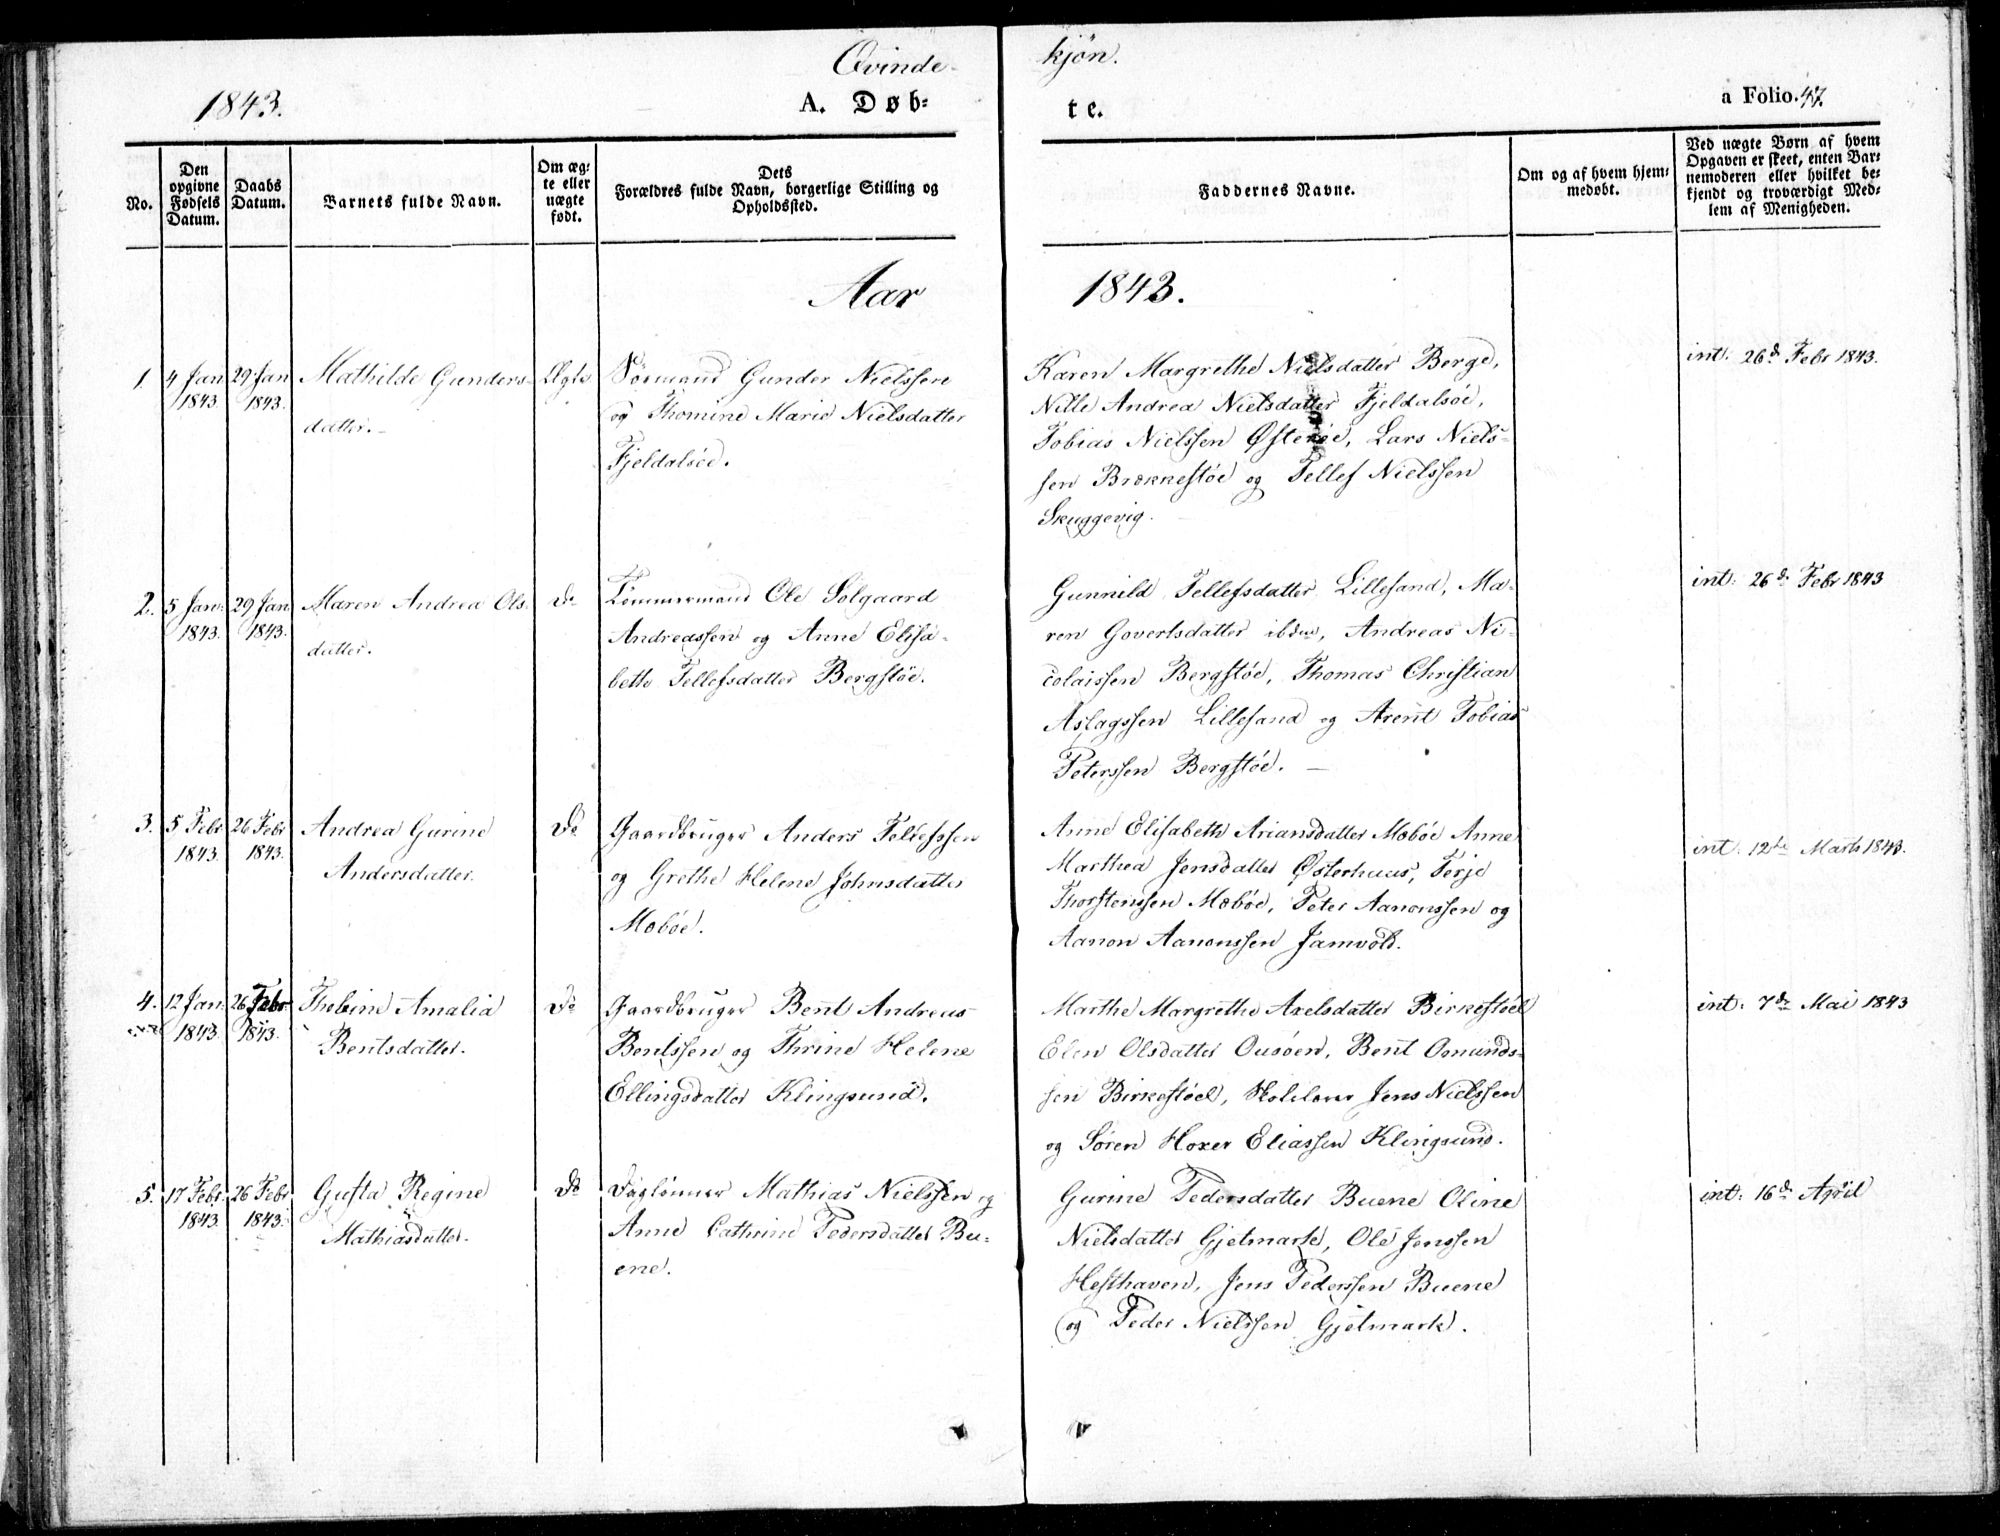 Qvinde- kjön.
1843. A. Døb- te. a Folio.47.
No.
Den opgivne Fødsels Datum.
Daabs Datum.
Barnets fulde Navn.
Om æg-
te eller
uægte
født.
Dets
Forældres fulde Navn, borgerlige Stilling og
Opholdssted.
Faddernes Navne.
Om og af hvem hjem-
medøbt.
Ved uægte Børn af hvem
Opgaven er skeet, enten Bar-
nemoderen eller hvilket be-
kjendt og troværdigt Med-
lem af Menigheden.
Aar 1843.
1.
4 Jan
1843.
29 Jan
1843.
Mathilde Gunders-
datter.
Ægte
Sömand Gunder Nielssen
og Thomine Marie Nielsdatter
Fjeldalsöe.
Karen Margrethe Nielsdatter Berge,
Nille Andrea Nielsdatter Fjeldalsöe,
Tobias Nielssen Østeröe, Lars Niels-
sen Brækkestöe og Tellef Nielssen
Skuggevig.
int. 26d Febr 1843.
2.
5 Jan:
1843.
29 Jan
1843.
Maren Andrea Ols-
datter.
Do
Tömmermand Ole Solgaard
Andreassen og Anne Elisa-
beth Tellefsdatter Bergstöe.
Gunnild Tellefsdatter Lillesand, Ma-
ren Govertsdatter ibdm, Andreas Ni-
colaissen Bergstöe, Thomas Christian
Aslagssen Lillesand og Arent Tobias
Peterssen Bergstöe.
int: 26d Febr 1843
3.
5 Febr
1843.
26 Febr
1843.
Andrea Gurine
Andersdatter.
Do
Gaardbruger Anders Tellefssen
og Grethe Helene Johnsdatter
Moböe.
Anne Elisabeth Ariansdatter Moböe Anne
Marthea Jensdatter Østerhuus, Terje
Thorstenssen Moböe, Peter Aanonssen og
Aanon Aanonssen Jamvold.
int: 12te Marts 1843.
4.
12 Jan:
1843.
26 Febr
1843.
Thobine Amalia
Bentsdatter.
Do
Gaardbruger Bent Andreas
Bentssen og Thrine Helene
Ellingsdatter Klingsund.
Marthe Margrethe Axelsdatter Birkestöel
Elen Olsdatter Ousöen, Bent Osmunds-
sen Birkestöel, Skolelærer Jens Nielssen
og Sören Hoxer Eliassen Klingsund.
int: 7de Mai 1843
5.
17 Febr.
1843.
26 Febr
1843.
Gusta Regine
Mathiasdatter.
Do
Daglönner Mathias Nielssen og
Anne Cathrine Pedersdatter Bu-
ene.
Gurine Pedersdatter Buene Oline
Nielsdatter Gjetmark, Ole Jenssen
Hesthaven, Jens Pederssen Buene
og Peder Nielssen Gjetmark.
int: 16d April